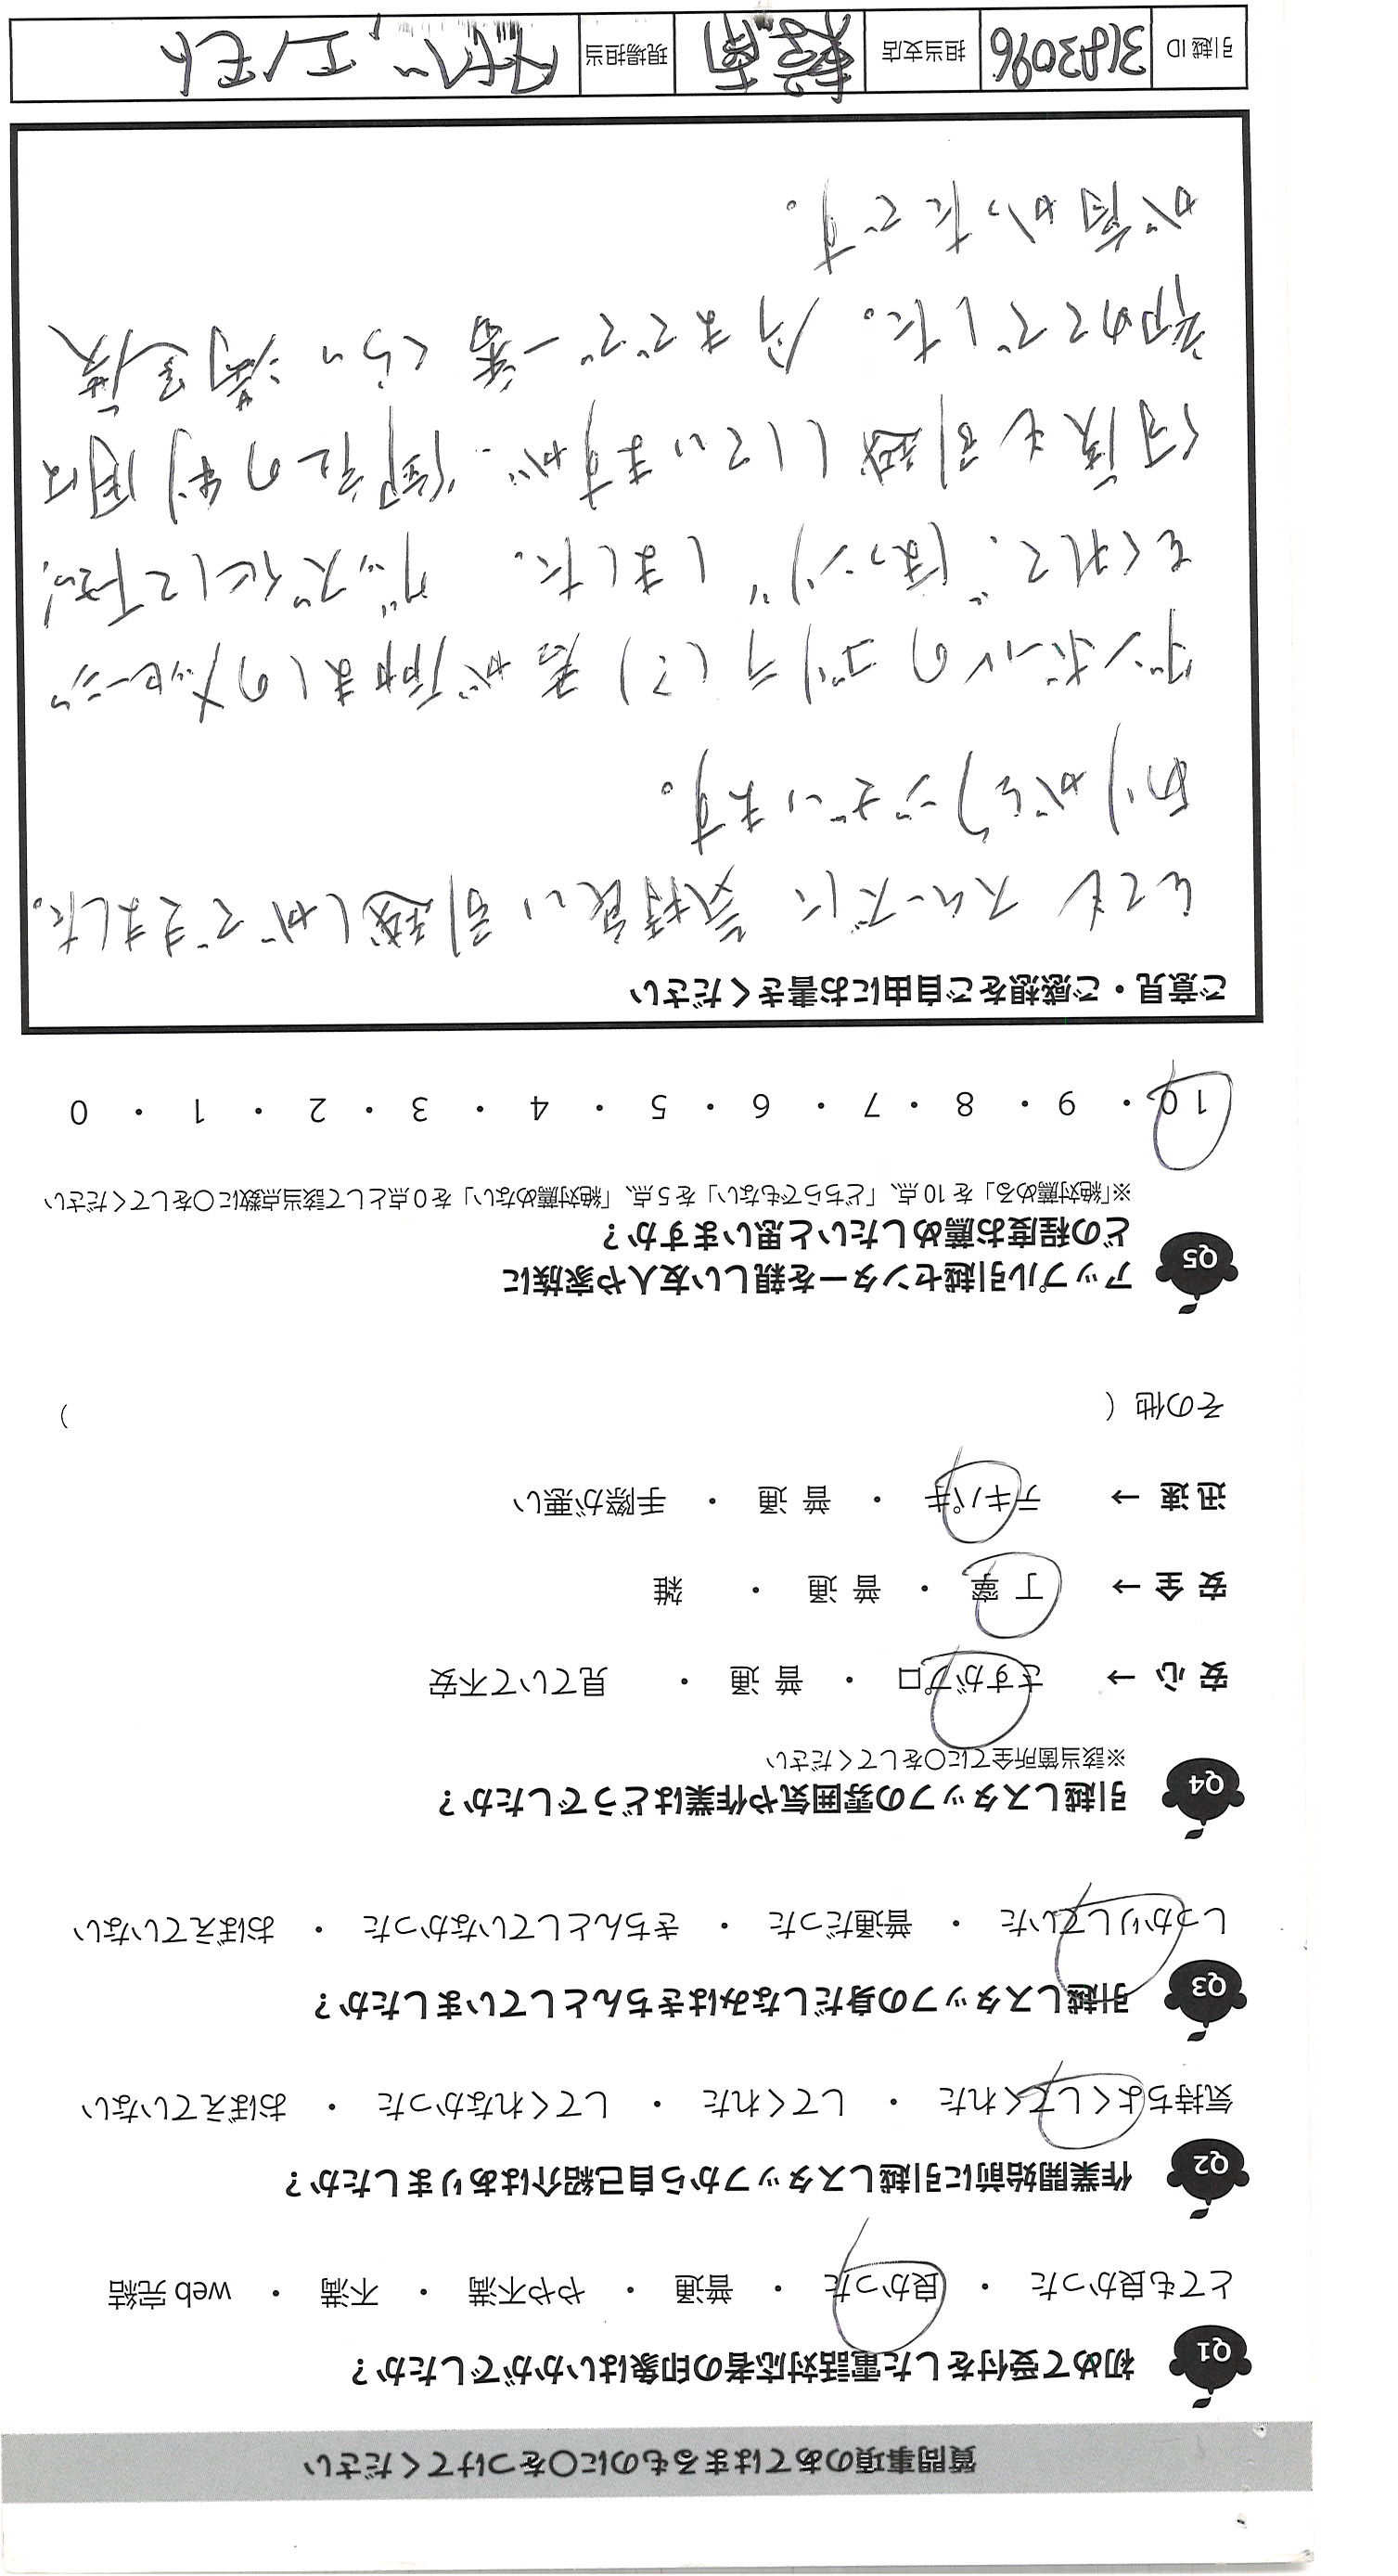 質問事項のあてはまるものに〇をつけてください
Q1 初めて受付をした電話対応者の印象はいかがでしたか？
とても良かった ・ 良かった ・ 普通 ・ やや不満 ・ 不満 ・ web 完結
Q2 作業開始前に引越しスタッフから自己紹介はありましたか？
気持ちよくしてくれた ・ してくれた ・ してくれなかった ・ おぼえていない
Q3 引越しスタッフの身だしなみはきちんとしていましたか？
しっかりしていた ・ 普通だった ・ きちんとしていなかった ・ おぼえていない
Q4 引越しスタッフの雰囲気や作業はどうでしたか？
※該当箇所全てに〇をしてください
安 心 → さすがプロ ・ 普 通 ・ 見ていて不安
安 全 → 丁 寧 ・ 普 通 ・ 雑
迅 速 → テキパキ ・ 普 通 ・ 手際が悪い
その他（ ）
Q5 アップル引越センターを親しい友人や家族に
どの程度お薦めしたいと思いますか？
※「絶対薦める」を 10 点、「どちらでもない」を 5 点、「絶対薦めない」を 0 点として該当点数に〇をしてください
10 ・ 9 ・ 8 ・ 7 ・ 6 ・ 5 ・ 4 ・ 3 ・ 2 ・ 1 ・ 0
ご意見・ご感想をご自由にお書きください
とても スムーズに 気持良い 引越しができました。
ありがとうございます。
ダンボールのゴリラ(?)君が励ましのメッセージ
をくれて、"ほっこり" しました。 グッズ化して下さい!
何度も引越ししていますが、御社の利用は
初めてでした。 今までで一番くらい 満足度
が高かったです。
引越 ID 3183096 担当支店 現場担当